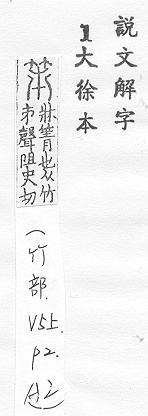 說文解字
1大徐本
牀簀也从竹
𠂔聲阻史切
(竹部.
V5上.
P2.